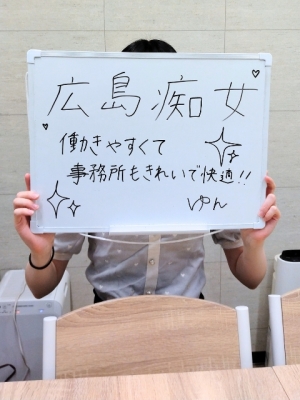 広島痴女
働きやすくて
事務所もきれいで快適!!
ゆん